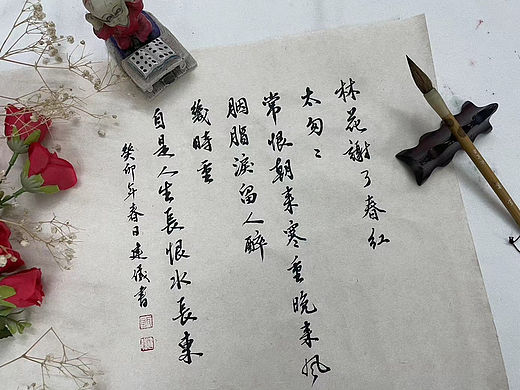 林花謝了春紅
太匆〻
常恨朝来寒重晚来風
胭脂淚留人醉
幾時重
自是人生長恨水長東
癸卯年春日建儀書